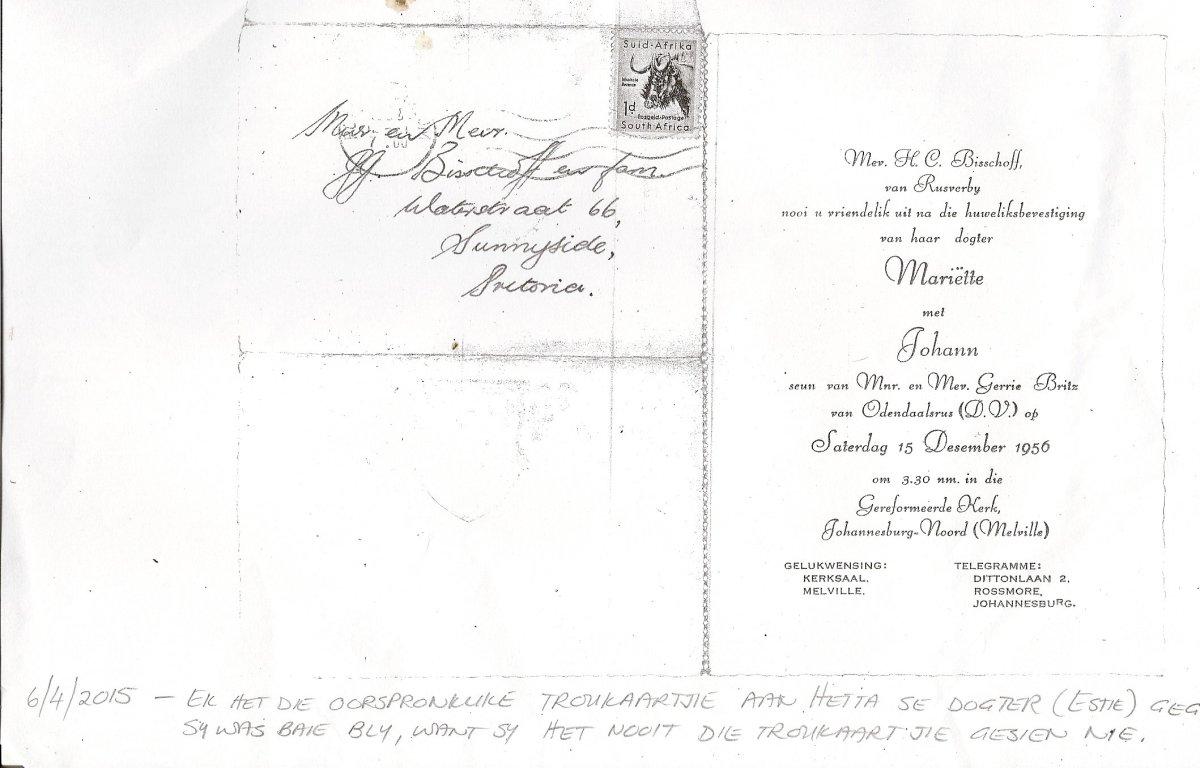 Suid-Afrika
1d
Posgeld-Postage
South Africa
Mnr. en Mevr.
Bisschoff en fam.
Waterstraat 66,
Sunnyside,
Pretoria.
Mev. H. C. Bisschoff,
van Rusverby
nooi u vriendelik uit na die huweliksbevestiging
van haar dogter
Mariëtte
met
Johann
seun van Mnr. en Mev. Gerrie Britz
van Odendaalsrus (D.V.) op
Saterdag 15 Desember 1956
om 3.30 nm. in die
Gereformeerde Kerk,
Johannesburg-Noord (Melville)
GELUKWENSING:
KERKSAAL,
MELVILLE.
TELEGRAMME:
DITTONLAAN 2,
ROSSMORE,
JOHANNESBURG.
6/4/2015 — EK HET DIE OORSPRONKLIKE TROUKAARTJIE AAN HETTA SE DOGTER (ESTIE) GEG
SY WAS BAIE BLY, WANT SY HET NOOIT DIE TROUKAARTJIE GESIEN NIE.